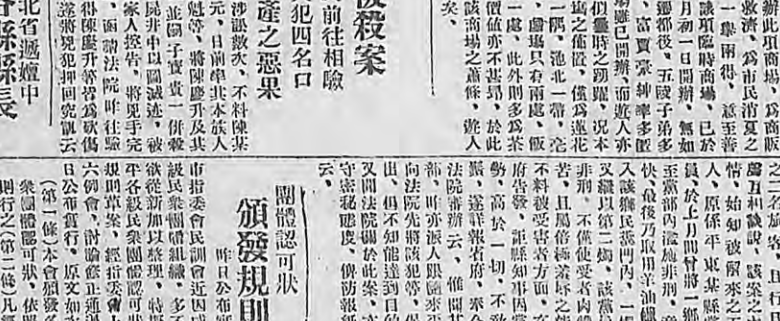 辦此項商場、為商販
救濟、為市民消夏之
一舉兩得、意至善
該項臨時商場、已於
月初一日開辦、無如
遷都後、五陵子弟多
、富賈豪紳率多匿
場雖已開辦、而遊人亦
似曩時之踴躍、况本
場之佈置、僅為蓮花
一隅、池北一帶、亳
、戲場只有兩處、飯
一處、此外則多為茶
價值亦不甚昂、於此
該商場之蕭條、遊人
矣、
被殺案
前往相驗
犯四名口
產之惡果
涉訟數次、不料陳某
元、日前率其本族人
魁等、將陳慶升及其
並園子寳貴一併殺
屍井中以圖滅迹、被
家人控告、將兇手完
、函請法院昨往驗
得陳慶升等皆為砍傷
遂將兇犯押回究辦云
北省遞嬗中
各縣縣長
之
處互相談說、該案之
情、始知被留來之
人、原係平東某縣黨
員、於上月間曾將一鄉
至黨部內濫施非刑、
快、最後乃取用羊油蠟
入該鄉民糞門內、一
又繼以第二燭、該黨
非刑、不僅使受者肉體
苦、且屬倍極羞辱之
不料被受害者方面、
府告發、詎縣知事因黨
勢、高於一切、不敢
賬、遂詳報省府、奉令
法院審辦云、惟聞某
部、昨亦派人跟隨來平
向法院先將該犯等、保
出、但不知能達到目的
又聞法院關於此案、亦
守密秘態度、俾訪報紙
云、
團體認可狀
頒發規則
昨日公布
市指委會民訓會近因
級民衆團體組織、多不
欲從新加以整理、特擬
平各級民衆團體認可狀
規則草案、經指委會
六例會、討論修正通過
日公布實行、原文如
（第一條）本會頒發各
衆團體認可狀、依照
則行之（第二條）凡經